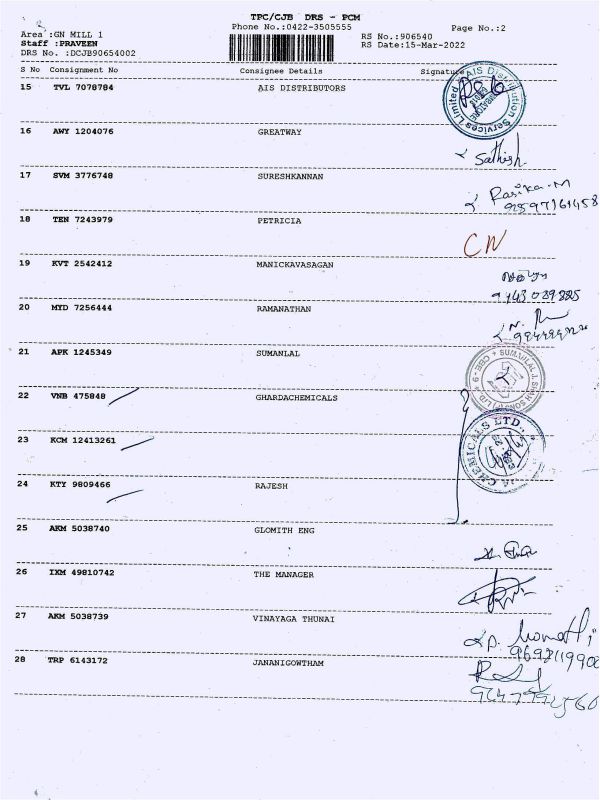 TPC/CJB DRS - PCM
Phone No.:0422-3505555
Page No.:2
Area :GN MILL 1
RS No.:906540
Staff :PRAVEEN
RS Date:15-Mar-2022
DRS No. :DCJB90654002
S No Consignment No Consignee Details Signature
15 TVL 7078784 AIS DISTRIBUTORS
AIS Distribution Services Limited
16 AWY 1204076 GREATWAY
Sathish
17 SVM 3776748 SURESHKANNAN
Rasika.M
9597161458
18 TEN 7243979 PETRICIA
CN
19 KVT 2542412 MANICKAVASAGAN
9443029885
20 MYD 7256444 RAMANATHAN
21 APK 1245349 SUMANLAL
22 VNB 475848 GHARDACHEMICALS
CHEMICALS LTD.
23 KCM 12413261
24 KTY 9809466 RAJESH
25 AKM 5038740 GLOMITH ENG
26 IXM 49810742 THE MANAGER
27 AKM 5038739 VINAYAGA THUNAI
28 TRP 6143172 JANANIGOWTHAM